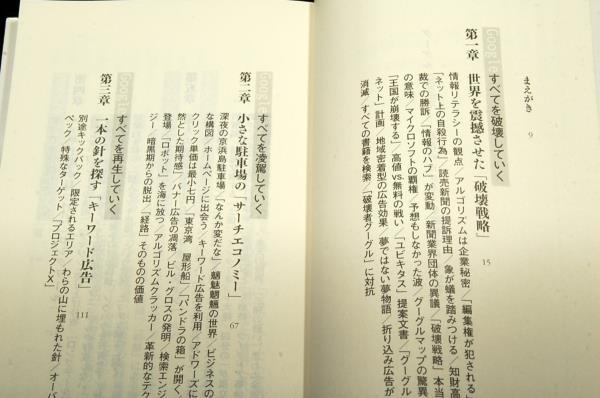 まえがき 9
Google
すべてを破壊していく
第一章 世界を震撼させた「破壊戦略」 15
情報リテラシーの観点／アルゴリズムは企業秘密／「編集権が犯される
「ネット上の自殺行為」／読売新聞の提訴理由／象が蟻を踏みつける／知財高
裁での勝訴／「情報のハブ」が変動／新聞業界団体の異議／「破壊戦略」本当
の意味／マイクロソフトの覇権／予想もしなかった波／グーグルマップの驚異
「王国が崩壊する」／高値vs.無料の戦い／「ユビキタス」提案文書／「グーグル
ネット」計画／地域密着型の広告効果／夢ではない夢物語／折り込み広告が
消滅／すべての書籍を検索／「破壊者グーグル」に対抗
Google
すべてを凌駕していく
第二章 小さな駐車場の「サーチエコノミー」 67
深夜の京浜島駐車場／「なんか変だな」／魑魅魍魎の世界／ビジネスの
な構図／ホームページに出会う／キーワード広告を利用／アドワーズに
クリック単価は最小七円／「東京湾 屋形船」／「パンドラの箱」が開く
然とした期待感／バナー広告の凋落／ビル・グロスの発明／検索エンジ
登場／「ロボット」を海に放つ／アルゴリズムクラッカー／革新的なテク
ジー／暗黒期からの脱出／「経路」そのものの価値
Google
すべてを再生していく
第三章 一本の針を探す「キーワード広告」 111
別途キックバック／限定されるエリア／わらの山に埋もれた針／オーバ
ペック／特殊なターゲット／「プロジェクトX」